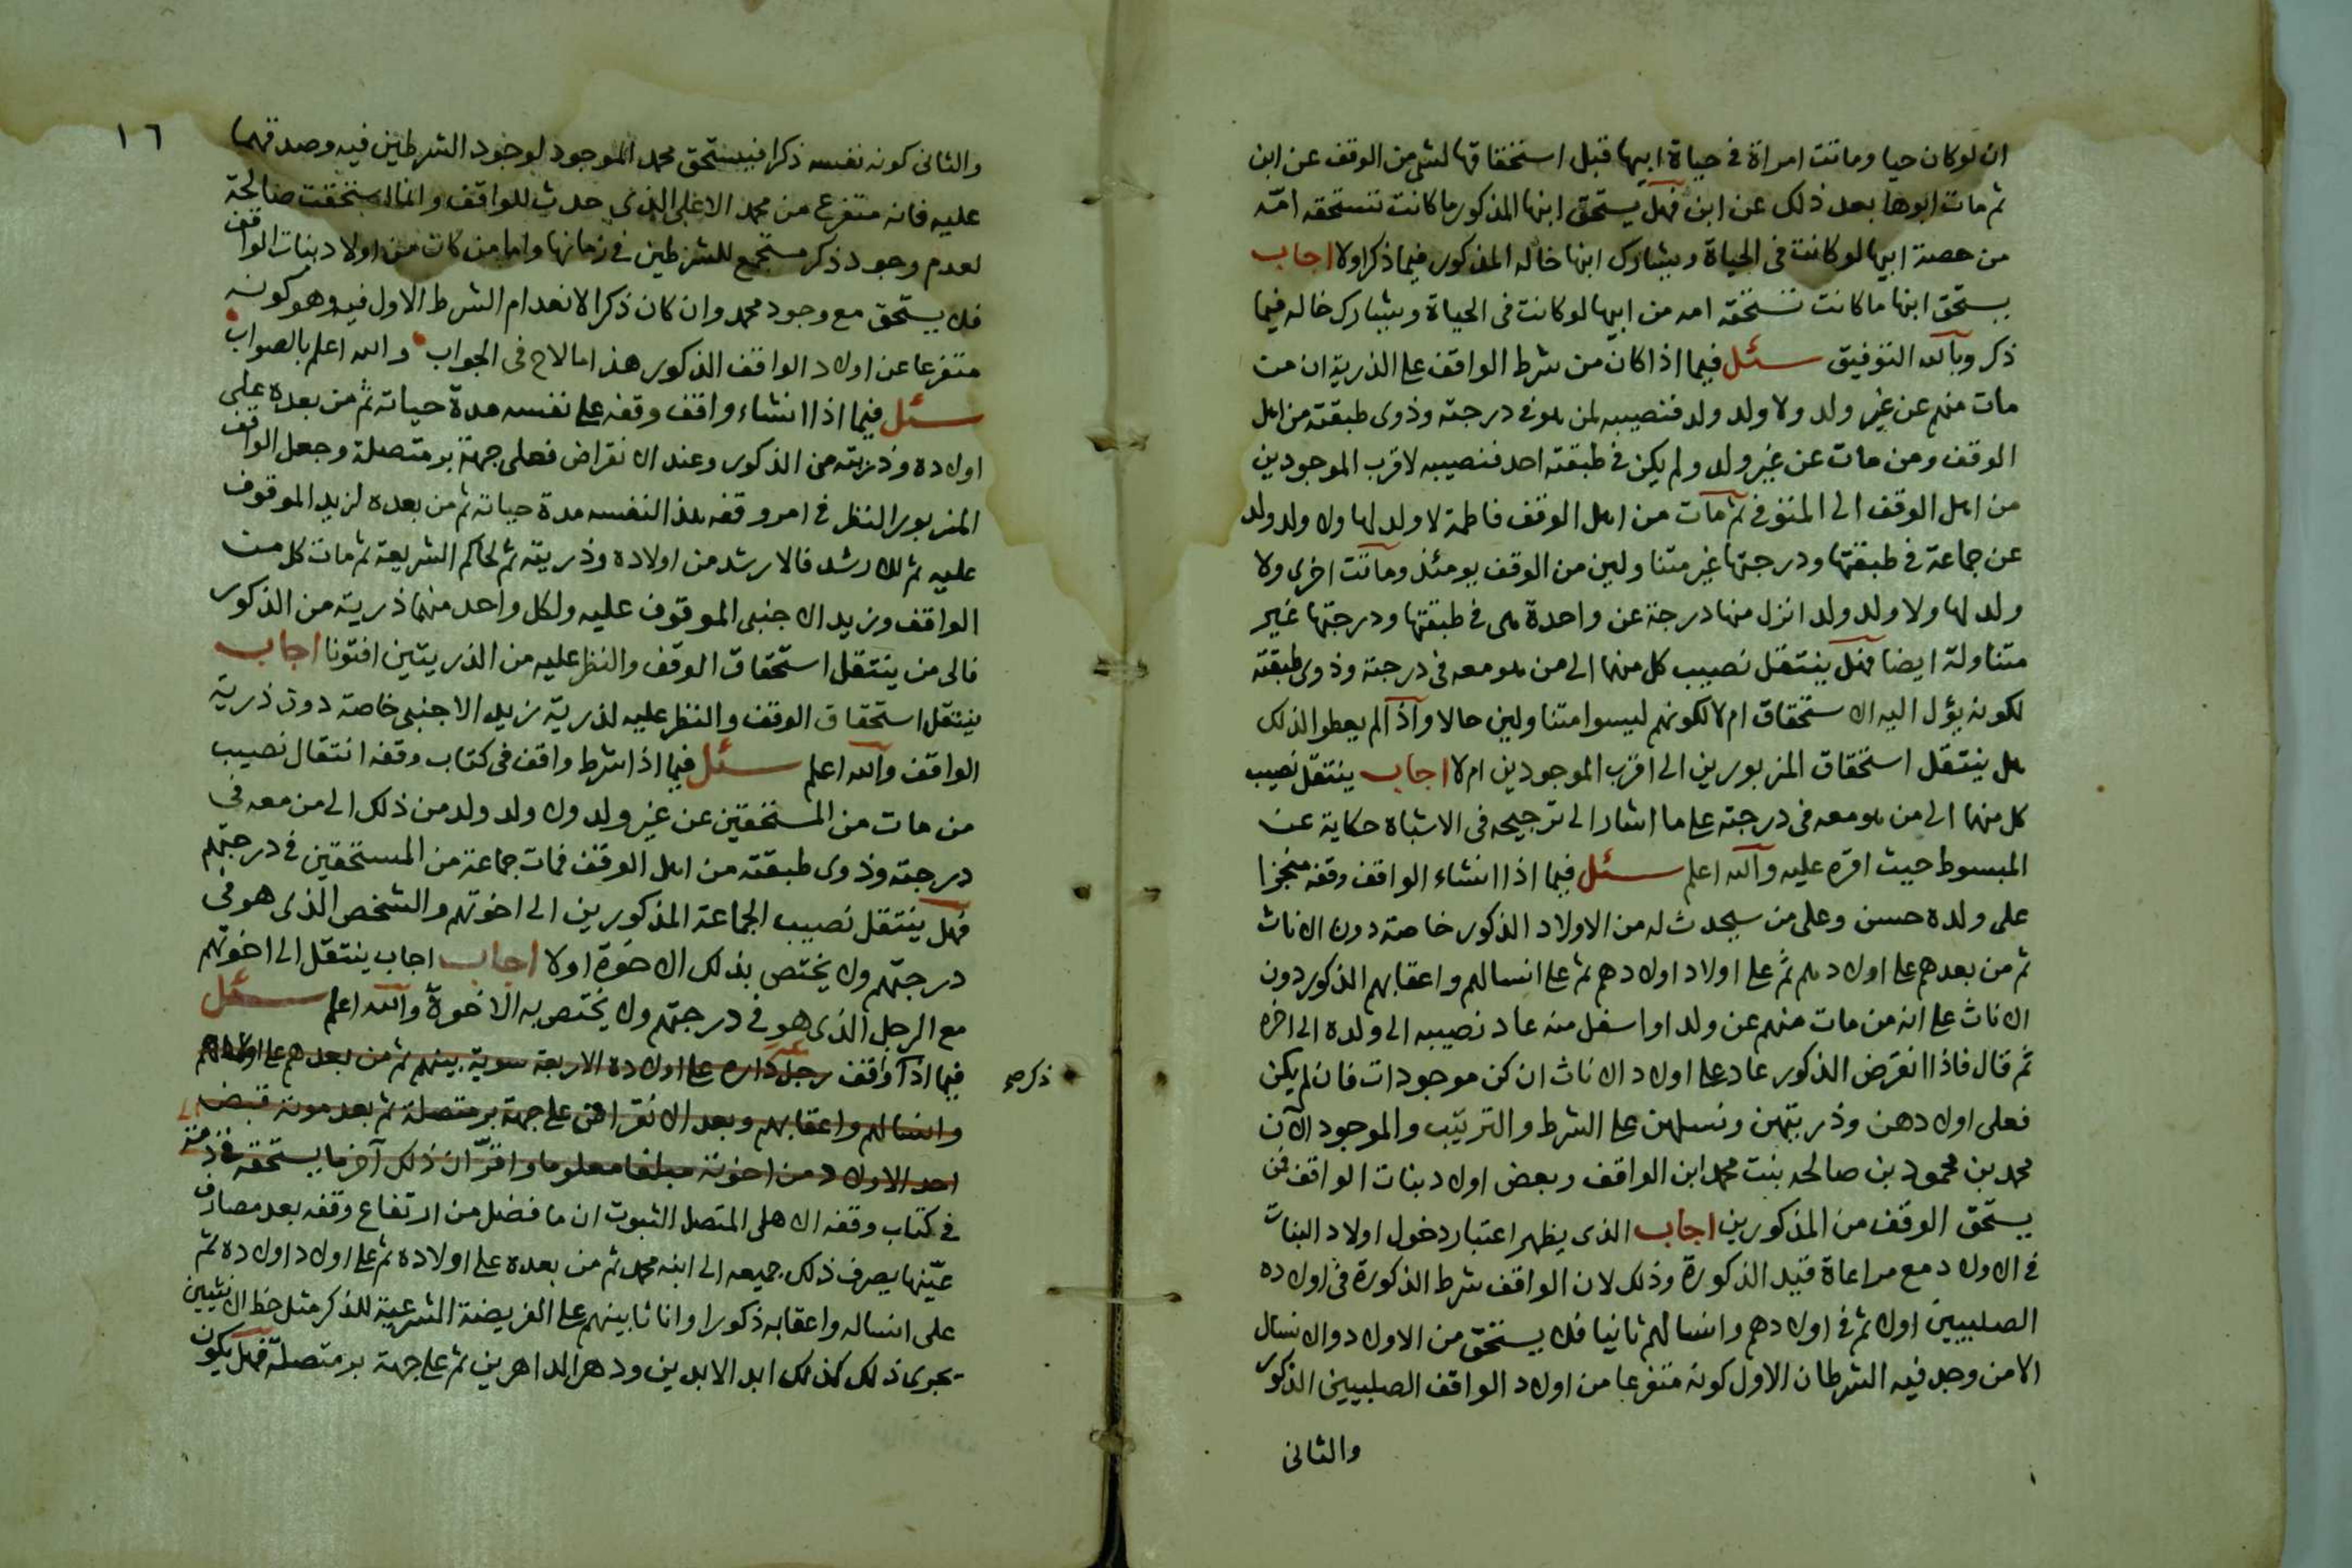 ان لو كان حيا وماتت امراة في حياة ابيها قبل استحقاقها لشئ من الوقف عن ابن
ثم مات ابوها بعد ذلك عن ابن فهل يستحق ابنها المذكور ما كانت تستحقه امّه
من حصة ابيها لو كانت في الحياة ويشارك ابنها خاله المذكور فيما ذكر اولا اجاب
يستحق ابنها ما كانت تستحقه امه من ابيها لو كانت في الحياة ويشارك خاله فيما
ذكر وبالله التوفيق سئل فيما اذا كان من شرط الواقف على الذرية ان من
مات منهم عن غير ولد ولا ولد ولد فنصيبه لمن هو في درجته وذوى طبقته من اهل
الوقف ومن مات عن غير ولد ولم يكن في طبقته احد فنصيبه لاقرب الموجودين
من اهل الوقف الى المتوفى ثم ماتت من اهل الوقف فاطمة لا ولد لها ولا ولد ولد
عن جماعة في طبقتها ودرجتها غير متناولين من الوقف يومئذ وماتت اخرى ولا
ولد لها ولا ولد ولد انزل منها درجة عن واحدة هى في طبقتها ودرجتها غير
متناولة ايضا فهل ينتقل نصيب كل منهما الى من هو معه في درجته وذوى طبقته
لكونه يؤل اليه الاستحقاق ام لا لكونهم ليسوا متناولين حالا واذا لم يعطوا لذلك
هل ينتقل استحقاق المزبورين الى اقرب الموجودين ام لا اجاب ينتقل نصيب
كل منهما الى من هو معه في درجته على ما اشار الى ترجيحه في الاشباه حكاية عن
المبسوط حيث اقره عليه والله اعلم سئل فيما اذا انشاء الواقف وقفه منجزا
على ولده حسن وعلى من سيحدث له من الاولاد الذكور خاصة دون الاناث
ثم من بعدهم على اولادهم ثم على اولاد اولادهم ثم على انسالهم واعقابهم الذكور دون
الاناث على انه من مات منهم عن ولد او اسفل منه عاد نصيبه الى ولده الى اخره
ثم قال فاذا انقرض الذكور عاد على اولاد الاناث ان كن موجودات فان لم يكن
فعلى اولادهن وذريتهن ونسلهن على الشرط والترتيب والموجود الآن
محمد بن محمود بن صالحه بنت محمد ابن الواقف وبعض اولاد بنات الواقف فمن
يستحق الوقف من المذكورين اجاب الذى يظهر اعتبار دخول اولاد البنات
في الاولاد مع مراعاة قيد الذكورة وذلك لان الواقف شرط الذكورة في اولاده
الصلبيين اولا ثم في اولادهم وانسالهم ثانيا فلا يستحق من الاولاد والانسال
الا من وجد فيه الشرطان الاول كونه متفرعا من اولاد الواقف الصلبيين الذكور
والثانى
١٦
والثانى كونه نفسه ذكرا فيستحق محمد الموجود لوجود الشرطين فيه وصدقهما
عليه فانه متفرع من محمد الاعلى الذى حدث للواقف وانما استحقت صالحة
لعدم وجود ذكر مستجمع للشرطين في زمانها واما من كان من اولاد بنات الواقف
فلا يستحق مع وجود محمد وان كان ذكرا لانعدام الشرط الاول فيه وهو كونه
متفرعا عن اولاد الواقف الذكور هذا ما لاح في الجواب والله اعلم بالصواب
سئل فيما اذا انشاء واقف وقفه على نفسه مدة حياته ثم من بعده على
اولاده وذريته من الذكور وعند الانقراض فعلى جهة بر متصلة وجعل الواقف
المزبور النظر في امر وقفه هذا لنفسه مدة حياته ثم من بعده لزيد الموقوف
عليه ثم للارشد فالارشد من اولاده وذريته ثم لحاكم الشريعة ثم مات كل من
الواقف وزيد الاجنبى الموقوف عليه ولكل واحد منهما ذرية من الذكور
فالى من ينتقل استحقاق الوقف والنظر عليه من الذريتين افتونا اجاب
ينتقل استحقاق الوقف والنظر عليه لذرية زيد الاجنبى خاصة دون ذرية
الواقف والله اعلم سئل فيما اذا شرط واقف في كتاب وقفه انتقال نصيب
من مات من المستحقين عن غير ولد ولا ولد ولد من ذلك الى من معه في
درجته وذوى طبقته من اهل الوقف فمات جماعة من المستحقين في درجتهم
فهل ينتقل نصيب الجماعة المذكورين الى اخوتهم والشخص الذى هو في
درجتهم ولا يختص بذلك الاخوة اولا اجاب اجاب ينتقل الى اخوتهم
مع الرجل الذى هو في درجتهم ولا يختص به الاخوة والله اعلم سئل
فيما اذا واقف رجل داره على اولاده الاربعة سوية بينهم ثم من بعدهم على اولادهم
ذكر صح
وانسالهم واعقابهم وبعد الانقراض على جهة بر متصلة ثم بعد موته قبض
احد الاولاد من اخوته مبلغا معلوما واقرّ ان ذلك آخر ما يستحقه في ذمته
في كتاب وقفه الاهلى المتصل الثبوت ان ما فضل من ارتفاع وقفه بعد مصارف
عيّنها يصرف ذلك جميعه الى ابنه محمد ثم من بعده على اولاده ثم على اولاد اولاده ثم
على انساله واعقابه ذكورا واناثا بينهم على الفريضة الشرعية للذكر مثل حظ الانثيين
يجرى ذلك كذلك ابد الابدين ودهر الداهرين ثم على جهة بر متصلة فهل يكون